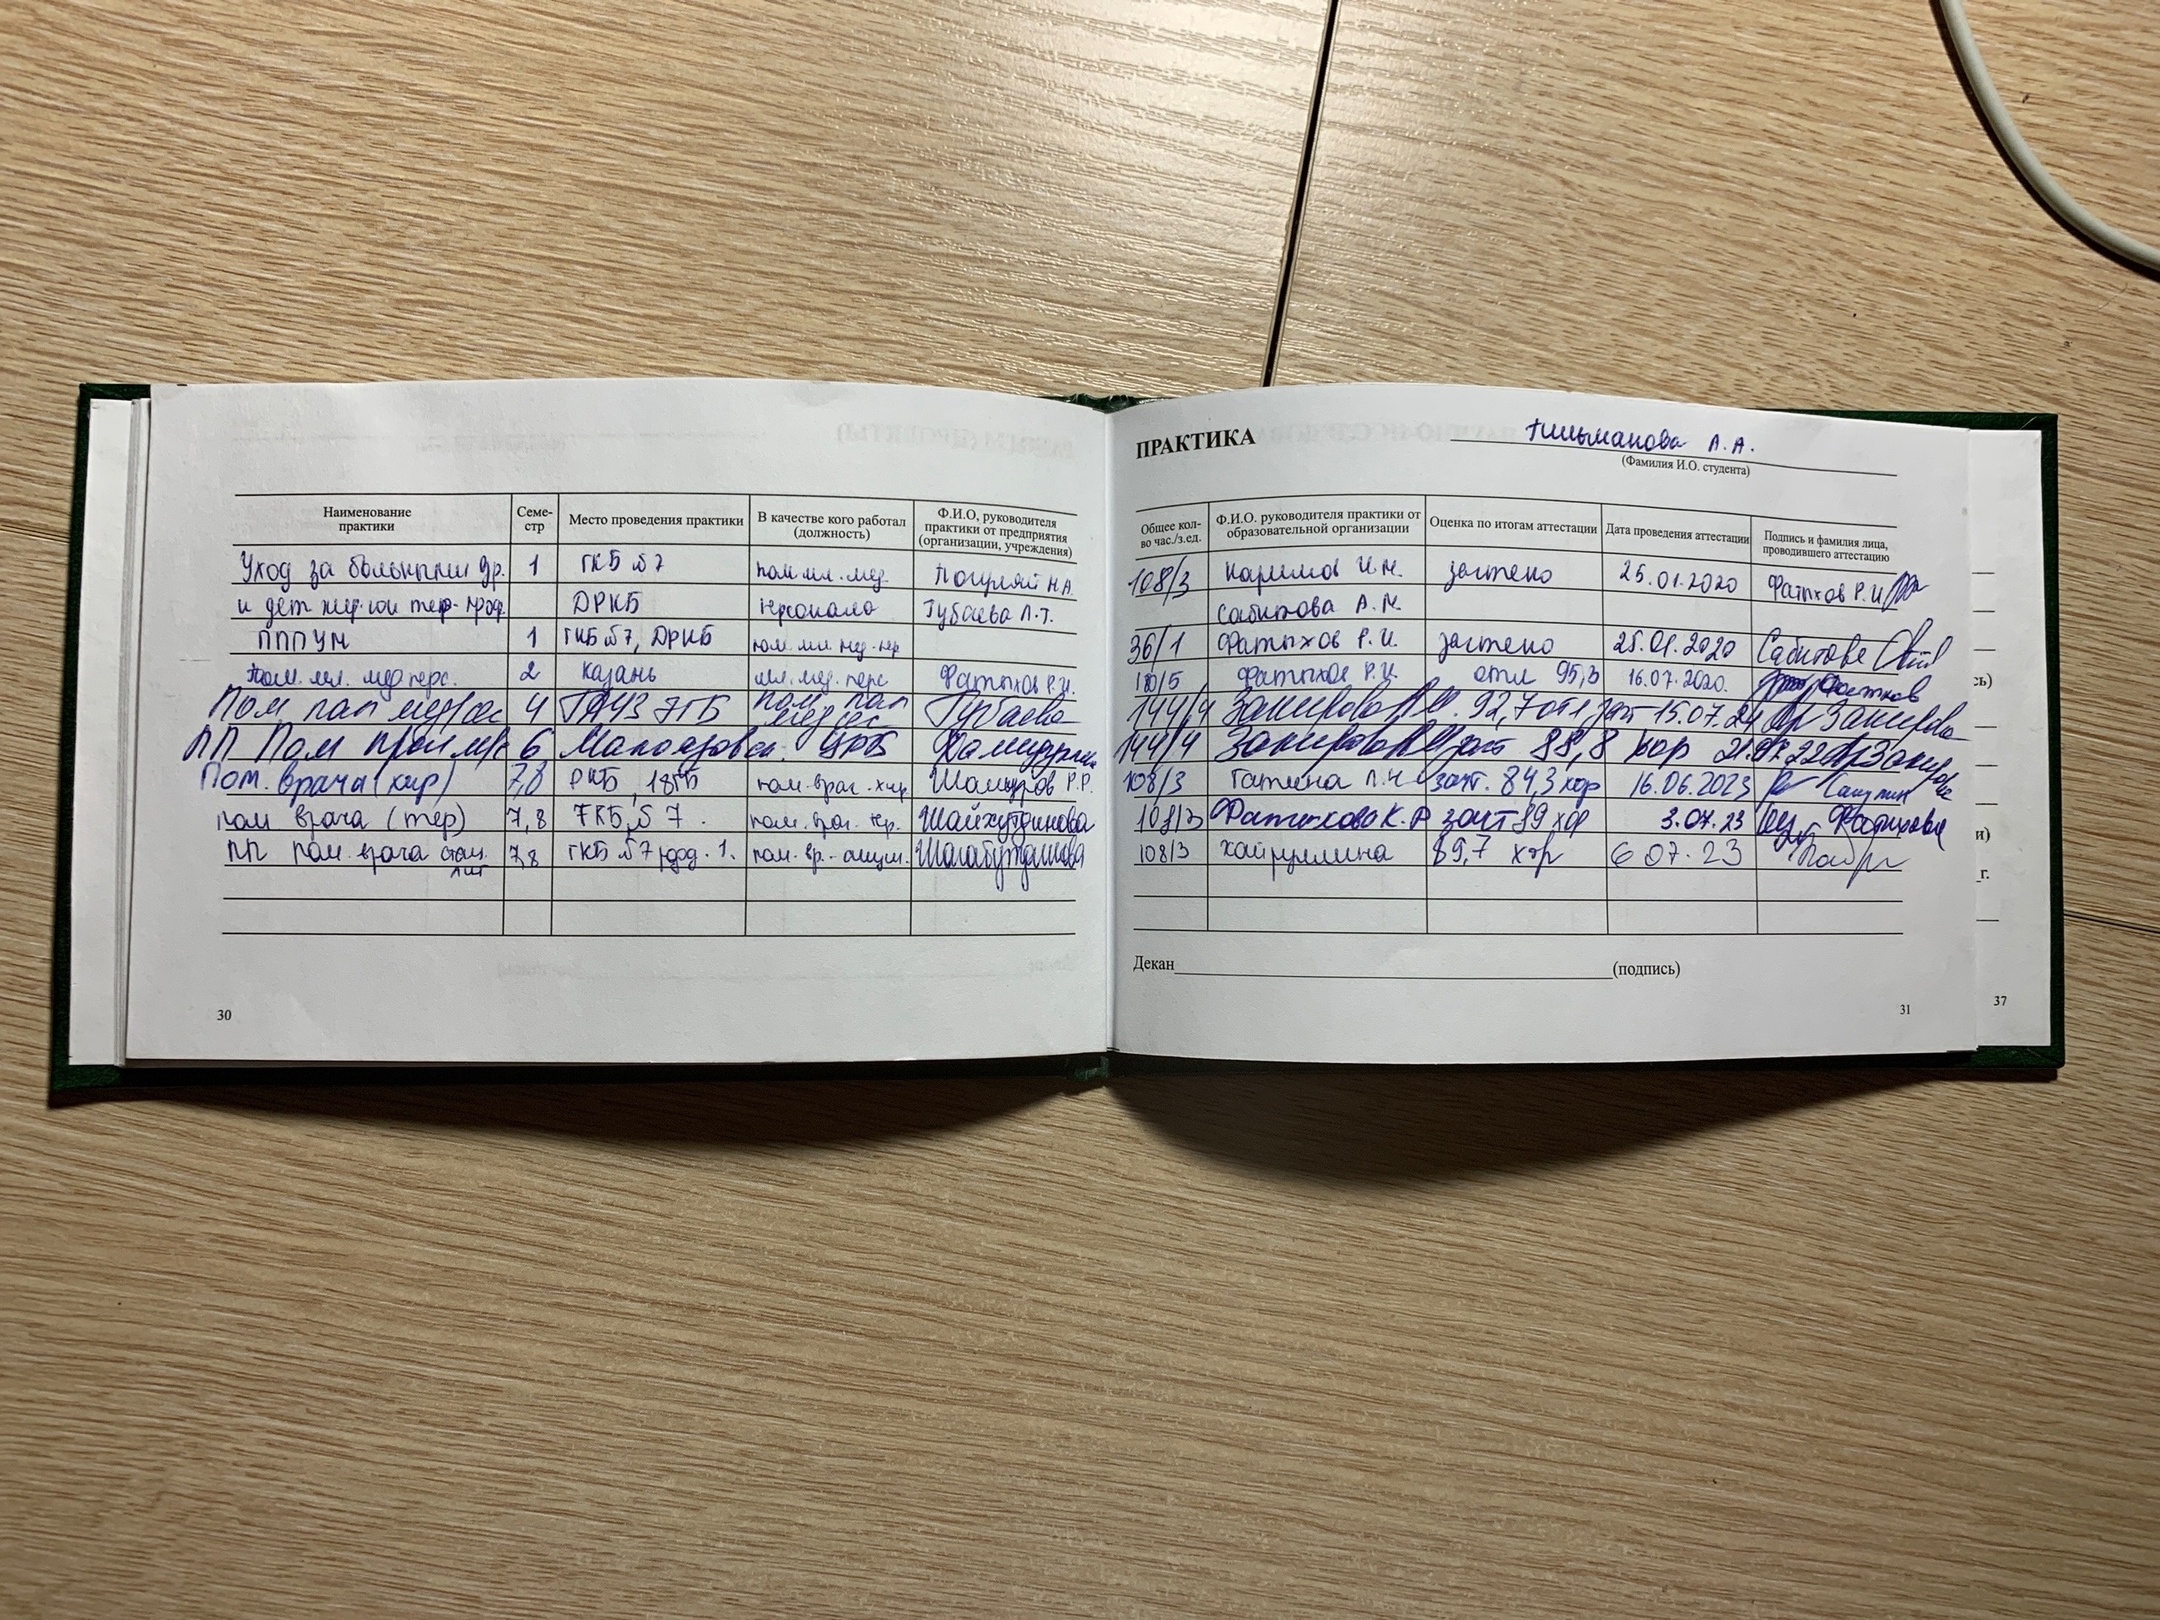 Наименование практики
Семе-стр
Место проведения практики
В качестве кого работал (должность)
Ф.И.О, руководителя практики от предприятия (организации, учреждения)
Уход за больными вр. 1 ГКБ №7 пом. мл. мед.
и дет ДРКБ персонала Губаева Л.Т.
ПППУМ 1 ГКБ №7, ДРКБ пом. мл. мед. пер
Пом. мл. мед перс. 2 Казань мл. мед. перс Фатыхов Р.И.
Пом пал медсес 4 ГАУЗ пом пал медсес Губаева
ПП Пом проц м/с 6 ЦРБ
Пом. врача (хир) 7,8 РКБ, 18ГБ пом. врач. хир Р.Р.
пом врача (тер) 7,8 ГКБ №7. пом. врач. тер. Шайхутдинова
ПП пом. врача 7,8 ГКБ №7 1. пом. вр. Шагабутдинова
30
ПРАКТИКА
А.А.
(Фамилия И.О. студента)
Общее кол-во час./з.ед.
Ф.И.О. руководителя практики от образовательной организации
Оценка по итогам аттестации
Дата проведения аттестации
Подпись и фамилия лица, проводившего аттестацию
108/3 Каримов И.М. зачтено 25.01.2020 Фатыхов Р.И
Сабитова А.М.
36/1 Фатыхов Р.И. зачтено 25.01.2020 Сабитова
180/5 Фатыхов Р.И. отл 95,3 16.07.2020. Фатыхов
144/4 Закирова 92,7 отл зач 15.07.21 Закирова
144/4 Закирова зач 88,8 хор 22 Закирова
108/3 зач. 84,3 хор 16.06.2023
108/3 Фатихова К.Р зачт 89 хор 3.07.23 Фатихова
108/3 Хайруллина 89,7 хор 6 07. 23
Декан
(подпись)
31
37
сь)
и)
г.